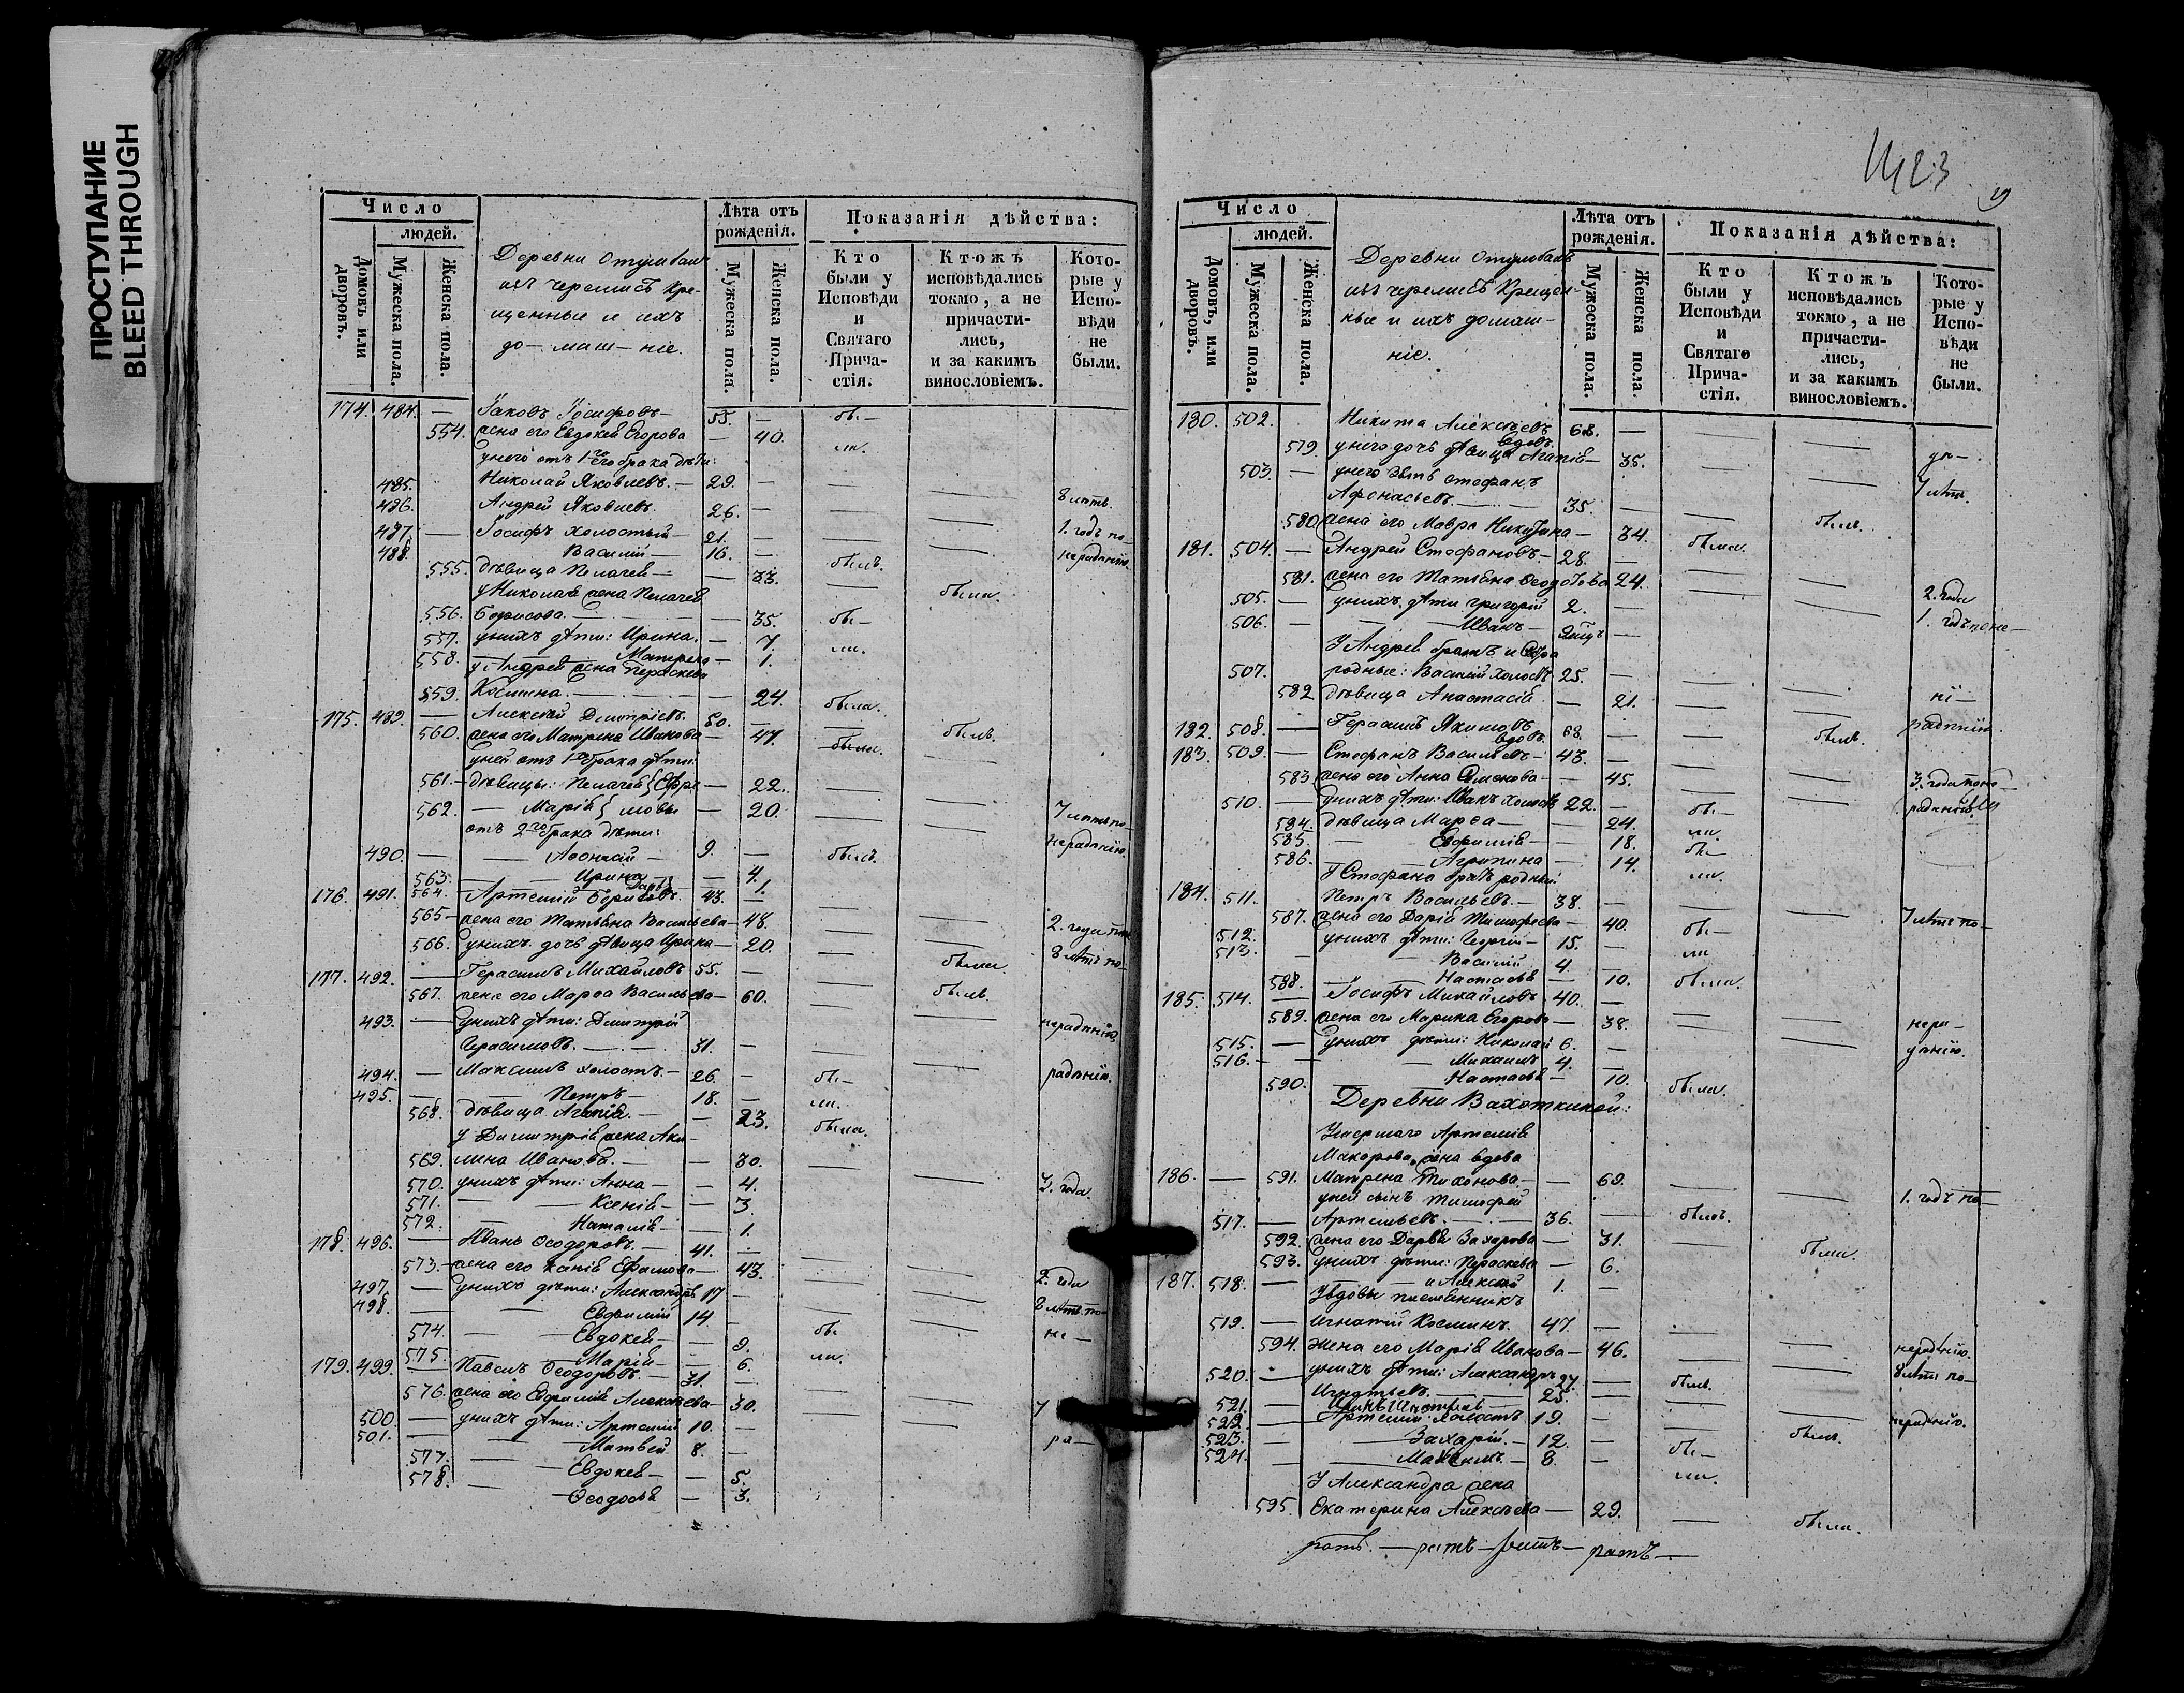 ПРОСТУПАНИЕ
BLEED THROUGH
Число
людей.
Домовъ или дворовъ.
Мужеска пола.
Женска пола.
Деревни
изъ черемисъ кре-
щенные и ихъ
до- маш- ніе.
Лѣта отъ рожденія.
Мужеска пола.
Женска пола.
Показанія дѣйства:
Кто были у Исповѣди и Святаго Прича- стія.
Ктожъ исповѣдались токмо, а не причасти- лись, и за какимъ винословіемъ.
Кото- рые у Испо- вѣди не были.
174. 484. — Іаковъ Іосифовъ — 55. — бы —
554. жена его Евдокея Егорова — 40. ли.
у него отъ 1го его брака дѣти:
485. Николай Яковлевъ. — 29. —
486. Андрей Яковлевъ. 26. — 8 лѣтъ.
487. — Іосифъ холостый — 21. — 1. годъ по
488. Василій — 16. — былъ. нерадѣнію.
555. дѣвица Пелагея — — 33. была.
у Николая жена Пелагея
556. Борисова. — — 35. бы —
557. у нихъ дѣти: Ирина. — 7. ли.
558. — Матрена — 1.
у Андрея жена Параскева
559. Космина. — — 24. была.
175. 489. — Алексей Дмитріевъ. 50. — былъ.
560. жена его Матрена Иванова — 47. была.
У ней отъ 1го брака дѣти:
561. — дѣвицы: Пелагея } Ефре — 22.
562. — Марія } мовы — 20. 7 лѣтъ по
отъ 2го брака дѣти: нерадѣнію.
490. — — Афонасій — 9. — былъ.
563. — Ирина — 4.
564. Дарья — 1.
176. 491. — Артемій Борисовъ. 43. —
565 — жена его Татьяна Васильева — 48. 2. года
566. у нихъ дочь дѣвица Ирина — 20. была 8 лѣтъ по
177. 492. — Герасимъ Михайловъ 55. — былъ.
567. жена его Марфа Васильева — 60. нерадѣнію.
493. — У нихъ дѣти: Дмитрій
Герасимовъ. — 31. — радѣнію.
494. — Максимъ холостъ. — 26. — бы —
495. — — Петръ — 18. — ли.
568. дѣвица Агапія. — — 23. была.
У Димитрія жена Аку-
569. лина Иванова. — — 30.
570. у нихъ дѣти: Анна — — 4. 3. года.
571. — Ксенія — — 3.
572. — Наталія — — 1.
178. 496. — Иванъ Феодоровъ. — 41. —
573. — жена его Ефимова — 43. 2. года
497. — у нихъ дѣти: Александръ 17 — 8 лѣтъ по
498. — — Евфимій 14 — не —
574. — Евдокея — — 9. бы
575. — Марія — — 6. ли.
179. 499. — Павелъ Феодоровъ. — 31 —
576. жена его Евфимія Алексѣева — 30. 7
500. — у нихъ дѣти: Артемій 10. — ра —
501. — — Матвей 8. —
577. — Евдокея — — 5.
578. — Феодосья — 3.
Число
людей.
Домовъ, или дворовъ.
Мужеска пола.
Женска пола.
Деревни
изъ черемисъ крещен-
ные и ихъ домаш-
ніе.
Лѣта отъ рожденія.
Мужеска пола.
Женска пола.
Показанія дѣйства:
Кто были у Исповѣди и Святаго Прича- стія.
Ктожъ исповѣдались токмо, а не причасти- лись, и за какимъ винословіемъ.
Кото- рые у Испо- вѣди не были.
180. 502. Никита Алексѣевъ вдовъ. 68. —
579. у него дочь дѣвица Агапія — 35.
503. — у него зять Стефанъ 7 лѣтъ.
Афонасьевъ. — 35. — былъ.
580. жена его Мавра Никитина — 34. была.
181. 504. — Андрей Стефановъ — 28. —
581. жена его Татьяна Феодотова 24. 2. года
505. — у нихъ дѣти Григорій 2. — 1. годъ по не —
506. — — Иванъ —
У Андрея братъ и сестра
507. родные: Василій холостъ 25. —
582 дѣвица Анастасія — 21. радѣнію.
182. 508. — Герасимъ Якимовъ вдовъ. 68. — былъ.
183. 509. — Стефанъ Васильевъ — 43. —
583. жена его Анна Семенова — — 45. 3. года по не
510. — у нихъ дѣти: Иванъ холостъ 22. — бы — радѣнію.
584. дѣвица Марфа — — 24. ли.
585. — Евфимія — — 18. бы —
586. — Агрипина — 14. ли.
У Стефана братъ родный
184. 511. Петръ Васильевъ. — 38. —
587. жена его Дарія Тимофеева — 40. бы — 7 лѣтъ по —
512. у нихъ дѣти: Георгій — 15. — ли
513. — — Василій 4. —
588. — Настасья — 10. была.
185. 514. — Іосифъ Михайловъ 40. —
589. жена его Марина Егорова — 38. нера —
515. — у нихъ дѣти: Николай 6. — дѣнію.
516. — — Михаилъ 4. —
590. — Настасья — 10. была.
Деревни Вахоткиной:
Умершаго Артемія
Макарова жена вдова
186. — 591. Матрена Тихонова. — — 69. 1. годъ по
у ней сынъ Тимофей
517. — Артемьевъ. — 36. — былъ.
592. жена его Дарья Захарова — 31. была.
593. у нихъ дѣти: Параскева — 6.
187. 518. — — и Алексѣй 1. —
У вдовы племянникъ
519. — Игнатій Косминъ. 47. — нерадѣнію.
594. жена его Марія Иванова — 46. 8 лѣтъ по —
520. — у нихъ дѣти: Александръ 27. — былъ.
Игнатьевъ.
521. — 25. — нерадѣнію.
522. — Артемій холостъ 19. — былъ.
523. — — Захарій. — 12. — бы —
524. — Максимъ. — 8. — ли.
У Александра жена
595. Екатерина Алексѣева — 29. — была.